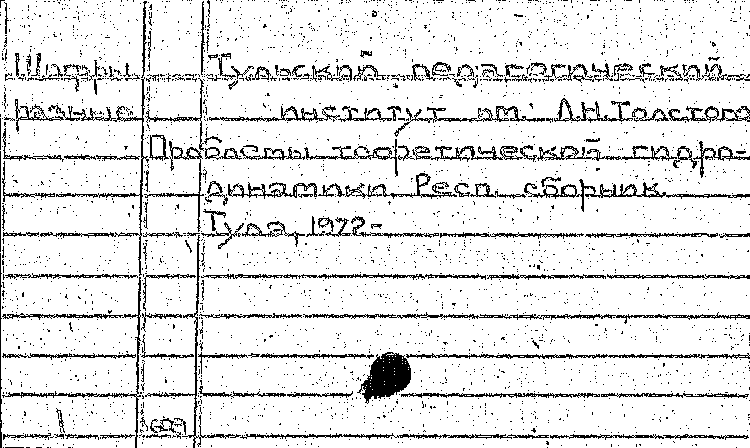 Шифры Тульский педагогический
разные институт им. Л.Н.Толстого
Проблемы теоретической гидро-
динамики. Респ. сборник.
Тула, 1972-